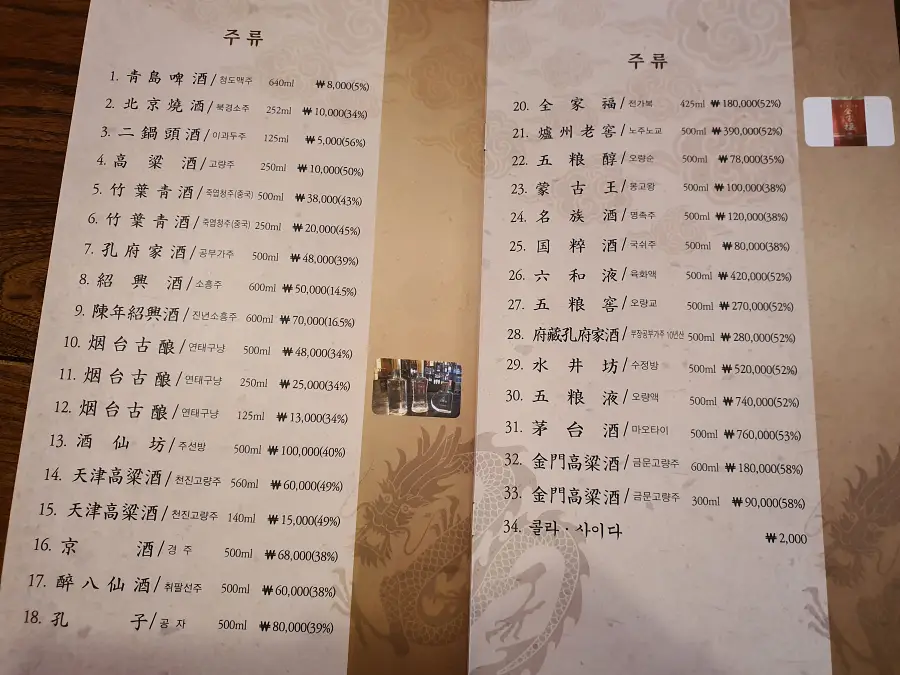 주류
1. 青島啤酒/청도맥주 640ml ₩8,000(5%)
2. 北京燒酒/북경소주 252ml ₩10,000(34%)
3. 二鍋頭酒/이과두주 125ml ₩5,000(56%)
4. 高粱酒/고량주 250ml ₩10,000(50%)
5. 竹葉青酒/죽엽청주(중국) 500ml ₩38,000(43%)
6. 竹葉青酒/죽엽청주(중국) 250ml ₩20,000(45%)
7. 孔府家酒/공부가주 500ml ₩48,000(39%)
8. 紹興酒/소흥주 600ml ₩50,000(14.5%)
9. 陳年紹興酒/진년소흥주 600ml ₩70,000(16.5%)
10. 烟台古酿/연태구냥 500ml ₩48,000(34%)
11. 烟台古酿/연태구냥 250ml ₩25,000(34%)
12. 烟台古酿/연태구냥 125ml ₩13,000(34%)
13. 酒仙坊/주선방 500ml ₩100,000(40%)
14. 天津高粱酒/천진고량주 560ml ₩60,000(49%)
15. 天津高粱酒/천진고량주 140ml ₩15,000(49%)
16. 京酒/경주 500ml ₩68,000(38%)
17. 醉八仙酒/취팔선주 500ml ₩60,000(38%)
18. 孔子/공자 500ml ₩80,000(39%)
주류
20. 全家福/전가복 425ml ₩180,000(52%)
21. 爐州老窖/노주노교 500ml ₩390,000(52%)
22. 五粮醇/오량순 500ml ₩78,000(35%)
23. 蒙古王/몽고왕 500ml ₩100,000(38%)
24. 名族酒/명족주 500ml ₩120,000(38%)
25. 国粹酒/국쉬주 500ml ₩80,000(38%)
26. 六和液/육화액 500ml ₩420,000(52%)
27. 五粮窖/오량교 500ml ₩270,000(52%)
28. 府藏孔府家酒/부장공부가주 10년산 500ml ₩280,000(52%)
29. 水井坊/수정방 500ml ₩520,000(52%)
30. 五粮液/오량액 500ml ₩740,000(52%)
31. 茅台酒/마오타이 500ml ₩760,000(53%)
32. 金門高粱酒/금문고량주 600ml ₩180,000(58%)
33. 金門高粱酒/금문고량주 300ml ₩90,000(58%)
34. 콜라·사이다 ₩2,000